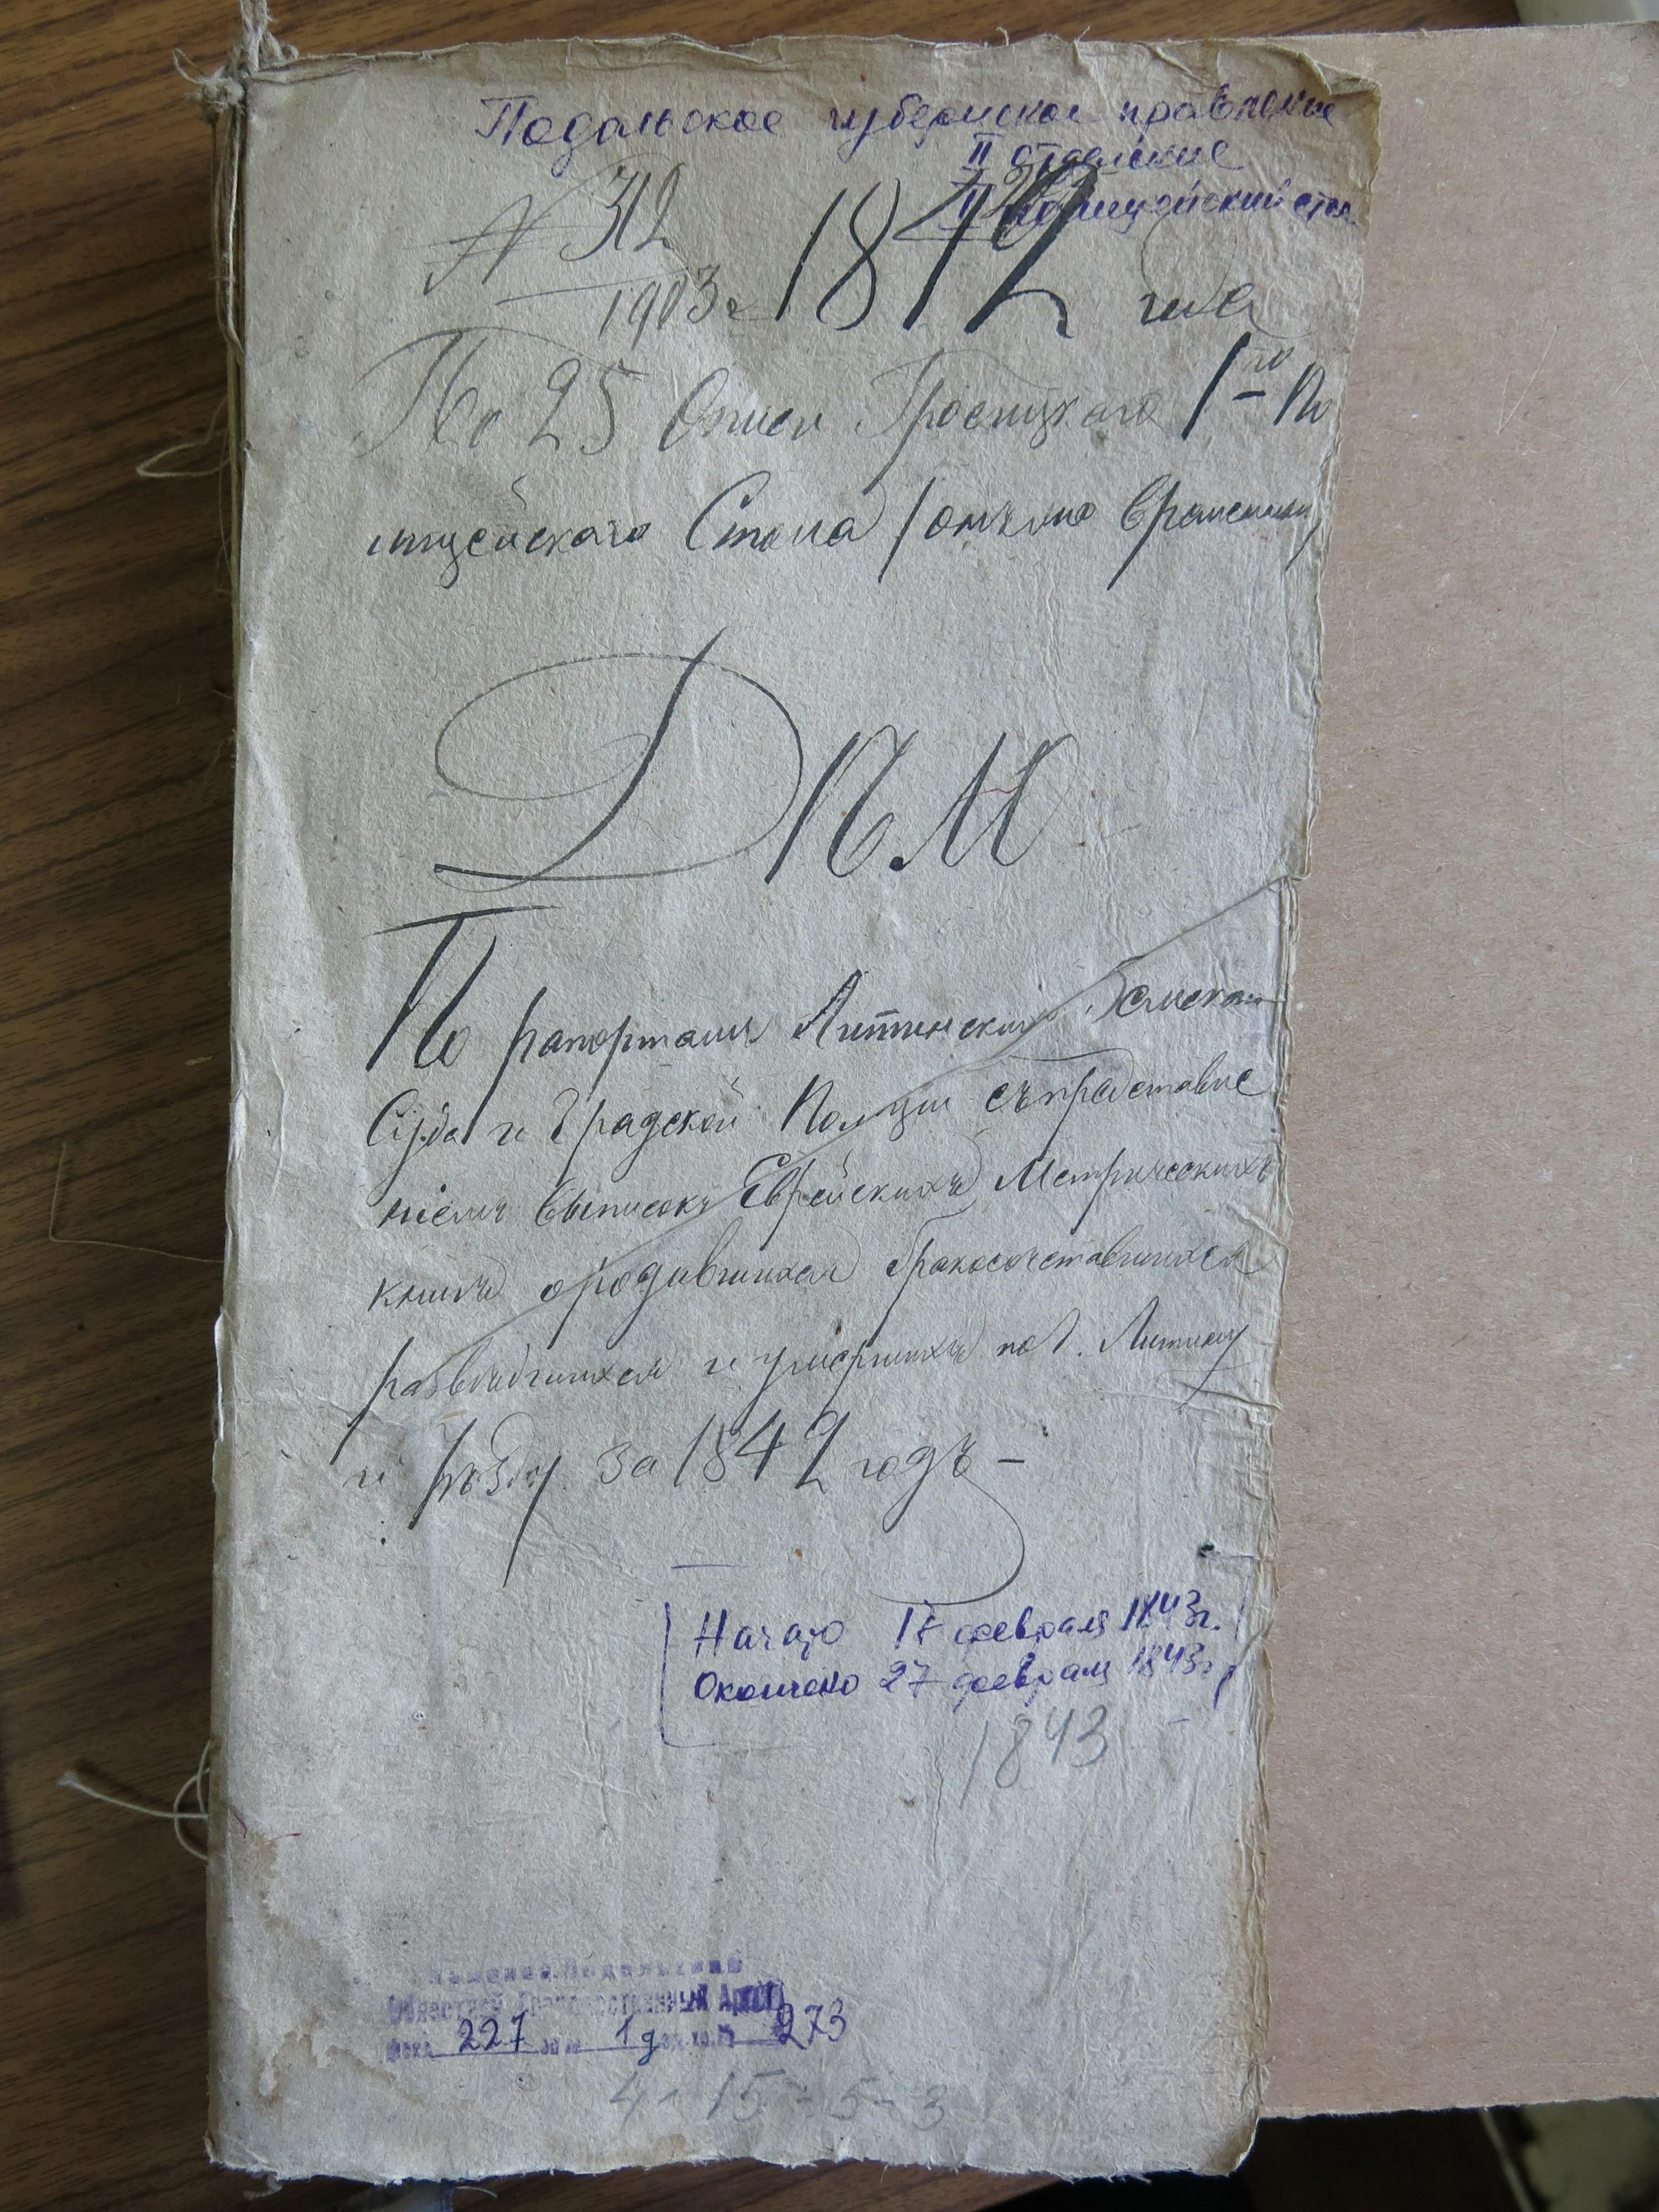 Подольское губернское правление
II отделение
II полицейский стол
№ 312
1903 г. 1842 года
По 25 Описи 1го По
лицейскаго Стола
Дѣло
По рапортамъ Литинскихъ Земскаго
Суда и Градской Полиціи съ представле
ніемъ выписокъ Еврейскихъ Метрическихъ
книгъ о родившихся бракосочетавшихся
разведшихся и умершихъ по г. Литину
и уѣзду за 1842 годъ –
Начато 17 февраля 1843 г.
Окончено 27 февраля 1843 г.
1843
Каменец-Подольский
Областной Государственный Архив
Фонд 227 оп. № 1д ед. хр. № 273
4 - 15 - 5 - 3